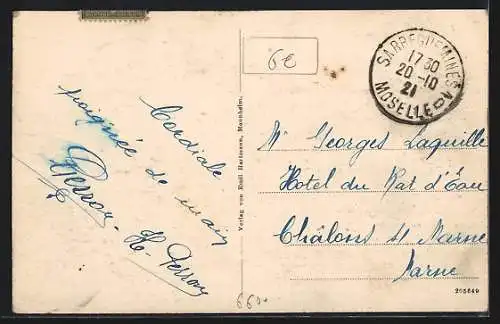 Cordiale
poignée de main
Perron
H. Perron
Verlag von Emil Hartmann, Mannheim.
6e
SARREGUEMINES
17 30
20-10
21
MOSELLE
Mr Georges Laquille
Hotel du Rat d'Eau
Châlons s/ Marne
Marne
205649